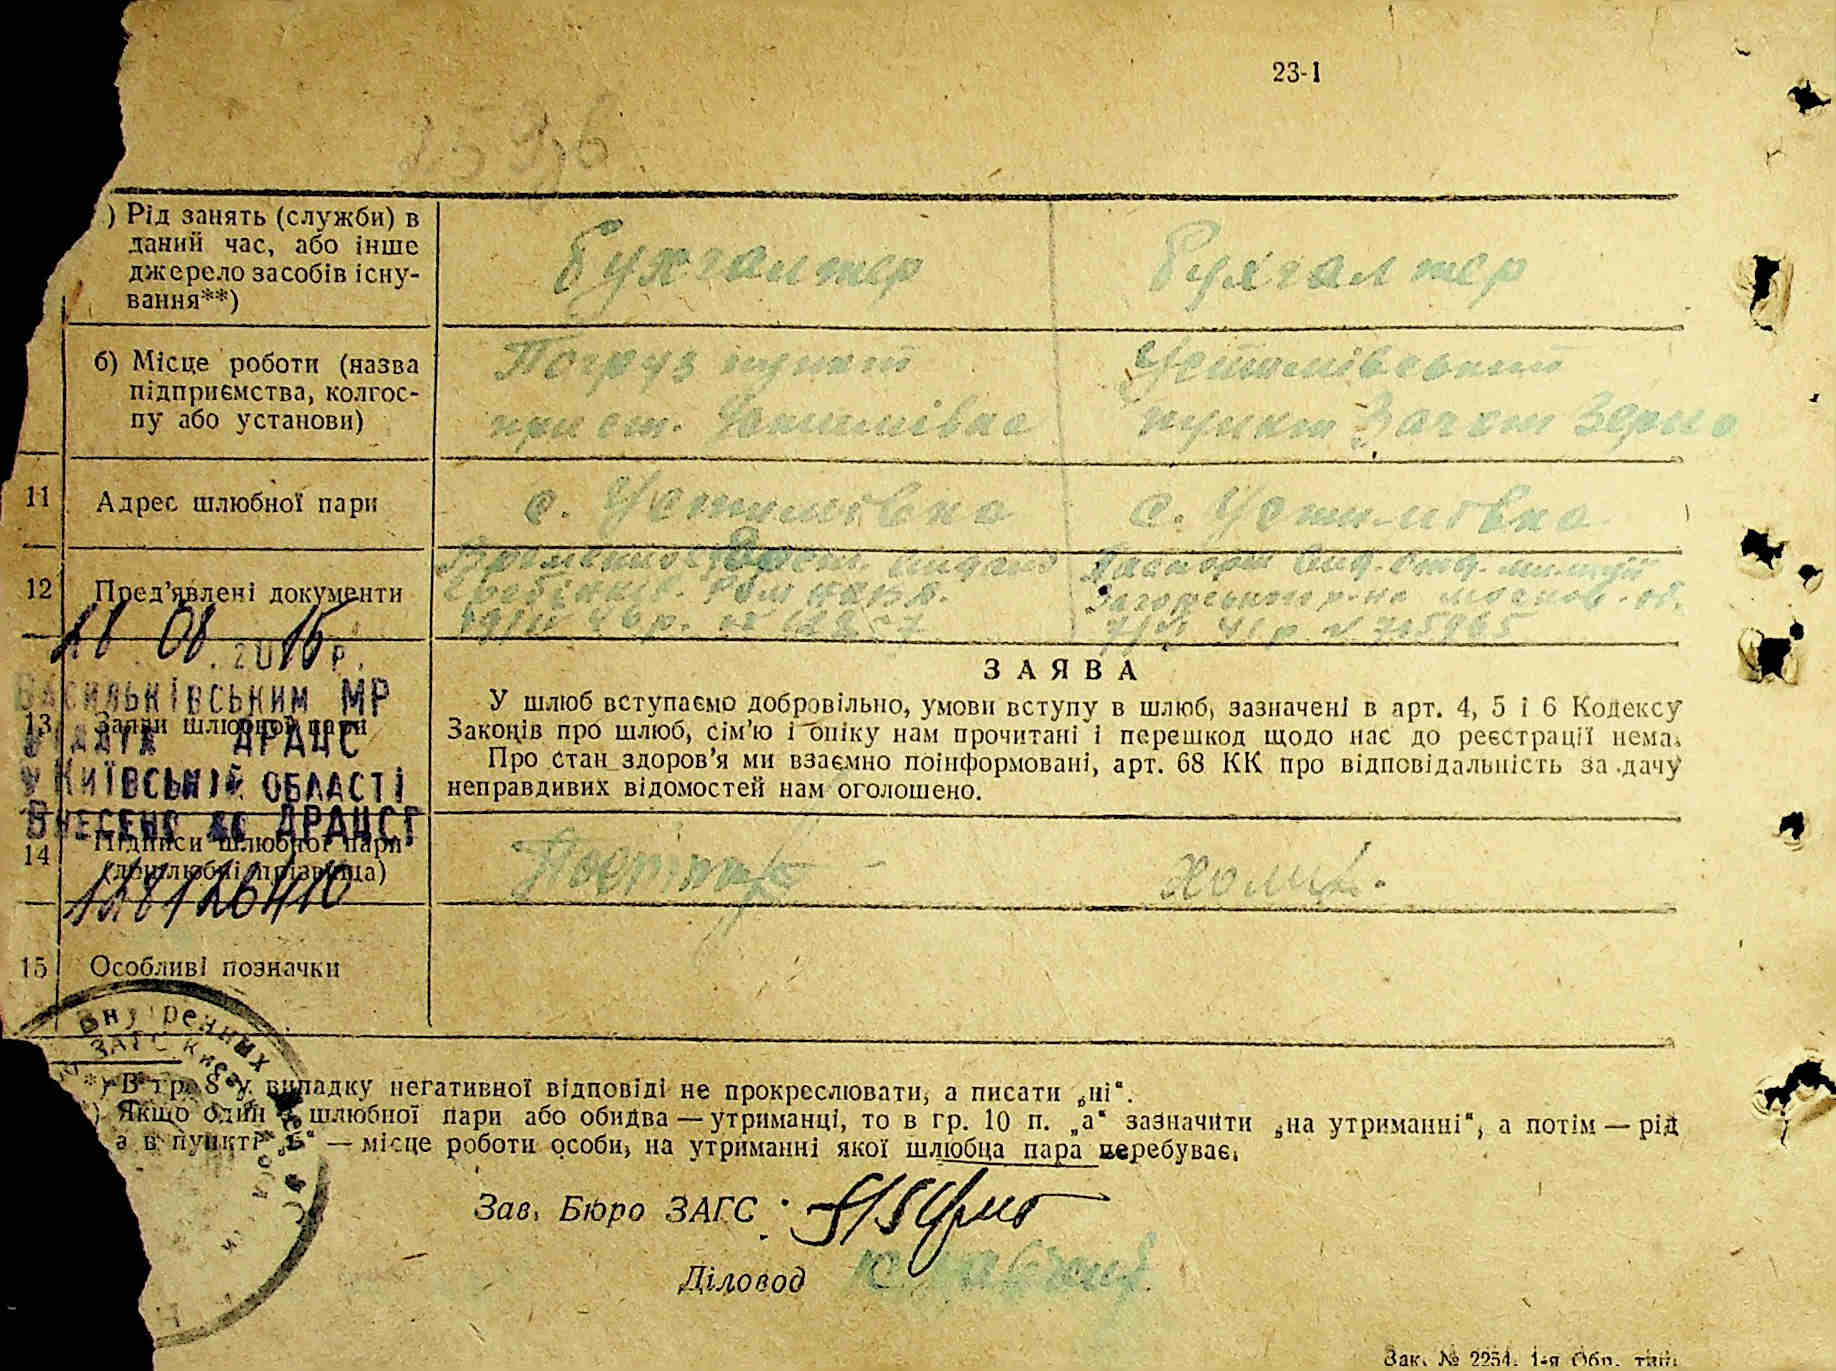 23-1
) Рід занять (служби) в
даний час, або інше
джерело засобів існу-
вання**)
Бухгалтер
Бухгалтер
б) Місце роботи (назва
підприємства, колгос-
пу або установи)
Погруз пункт
при ст. Устимівка
Устимівський
пункт Загот Зерно
11
Адрес шлюбної пари
с. Устимівка
с. Устимівка
12
Пред'явлені документи
Временное видано
Паспорт вид. отд. милиції
Загорського р-на москов. об.
28 08 2015 р.
Васильківським МР
ДРАЦС
у Київській області
Внесено до ДРАЦСГ
128126410
13
Заяви шлюбної пари
ЗАЯВА
У шлюб вступаємо добровільно, умови вступу в шлюб, зазначені в арт. 4, 5 і 6 Кодексу
Законів про шлюб, сім'ю і опіку нам прочитані і перешкод щодо нас до реєстрації нема.
Про стан здоров'я ми взаємно поінформовані, арт. 68 КК про відповідальність за дачу
неправдивих відомостей нам оголошено.
14
Підписи шлюбної пари
(дошлюбні прізвища)
15
Особливі позначки
Внутренних
ЗАГС Киев
*) В гр. 8 у випадку негативної відповіді не прокреслювати, а писати „ні“.
) Якщо один з шлюбної пари або обидва — утриманці, то в гр. 10 п. „а“ зазначити „на утриманні“, а потім — рід
а в пункті „б“ — місце роботи особи, на утриманні якої шлюбна пара перебуває.
Зав. Бюро ЗАГС
Діловод
Зак. № 2254. 1-я Обр. тип.